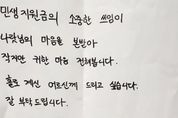 민생지원금의 소중한 쓰임이
나랏님의 마음을 본받아
작지만 귀한 마음 전해봅니다.
홀로 계신 어르신께 드리고 싶습니다.
잘 부탁드립니다.